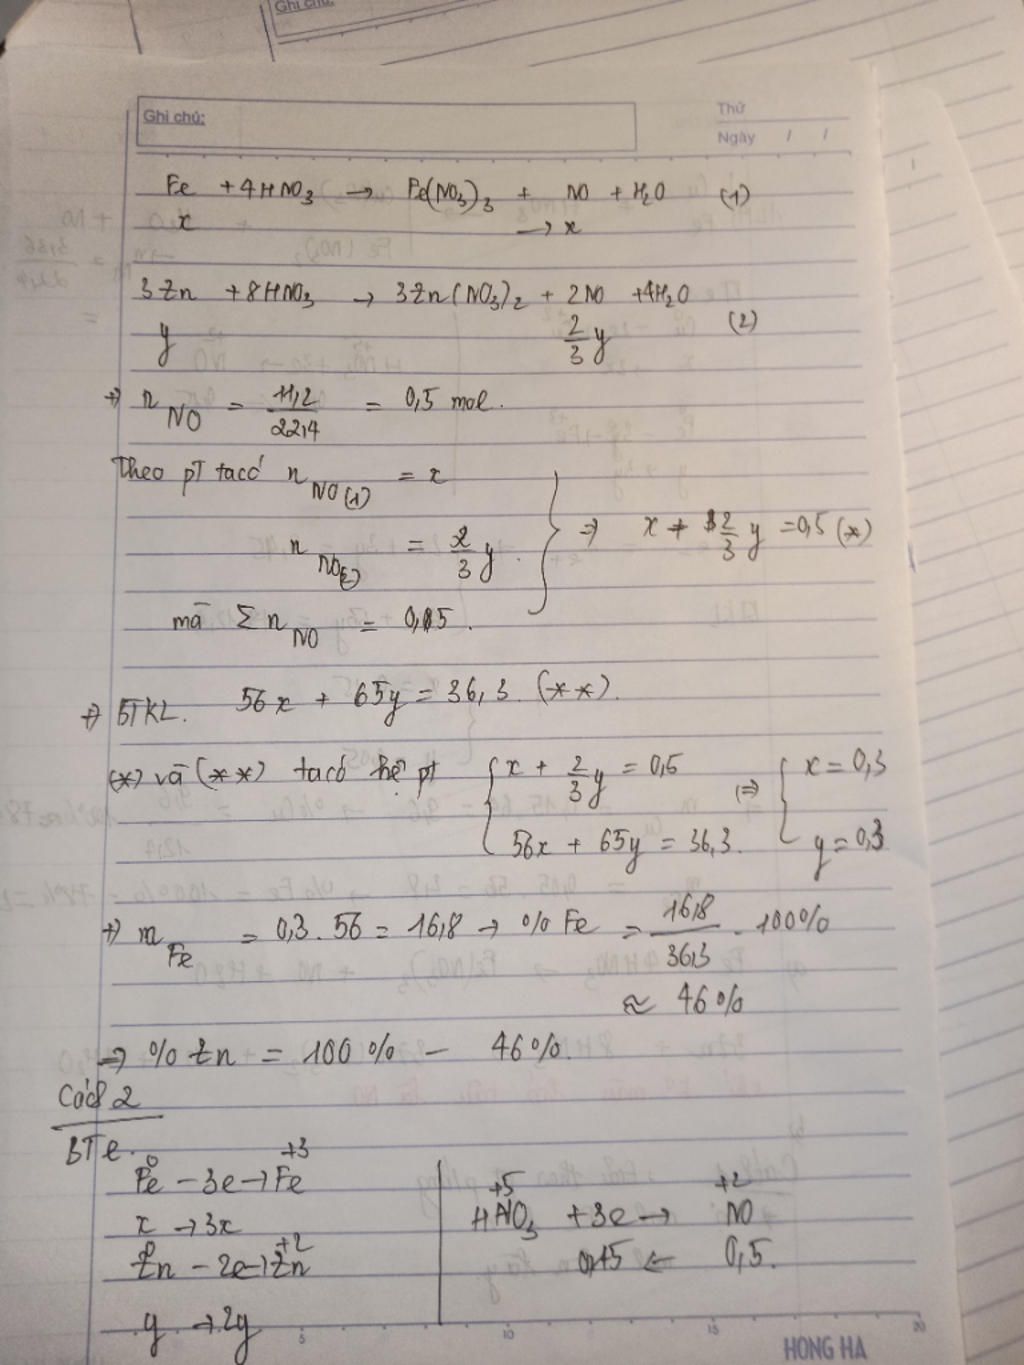 Ghi chú:
Ghi chú:
Thứ
Ngày / /
Fe + 4HNO3 → Fe(NO3)3 + NO + H2O (1)
x → x
3Zn + 8HNO3 → 3Zn(NO3)2 + 2NO + 4H2O
y 2/3 y (2)
+) nNO = 11,2/22,4 = 0,5 mol.
Theo pT tacó nNO(1) = x
nNO(2) = 2/3 y. ⇒ x + 2/3 y = 0,5 (*)
mà Σ nNO = 0,5.
+) BTKL. 56x + 65y = 36,3. (**).
(*) và (**) tacó hệ pt { x + 2/3 y = 0,5 ⇔ { x = 0,3
56x + 65y = 36,3. y = 0,3
+) mFe = 0,3 . 56 = 16,8 → % Fe = 16,8/36,3 . 100%
≈ 46%
⇒ % Zn = 100% - 46%.
Cách 2
BTe.
Fe⁰ - 3e → Fe⁺³
x → 3x
HNO3 (+5) + 3e → NO (+2)
Zn⁰ - 2e → Zn⁺²
1,5 ← 0,5.
y → 2y
5 10 15 20
HONG HA